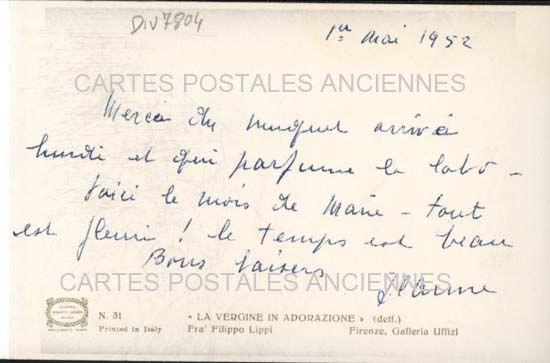 Div7804
1er mai 1952
CARTES POSTALES ANCIENNES
Merci du muguet arrivé
lundi et qui parfume le labo -
Voici le mois de Marie - tout
est fleuri ! le temps est beau
Bons baisers
CARTES POSTALES ANCIENNES
Jeanne
N. 31
« LA VERGINE IN ADORAZIONE » (dett.)
Printed in Italy
Fra' Filippo Lippi
Firenze, Galleria Uffizi